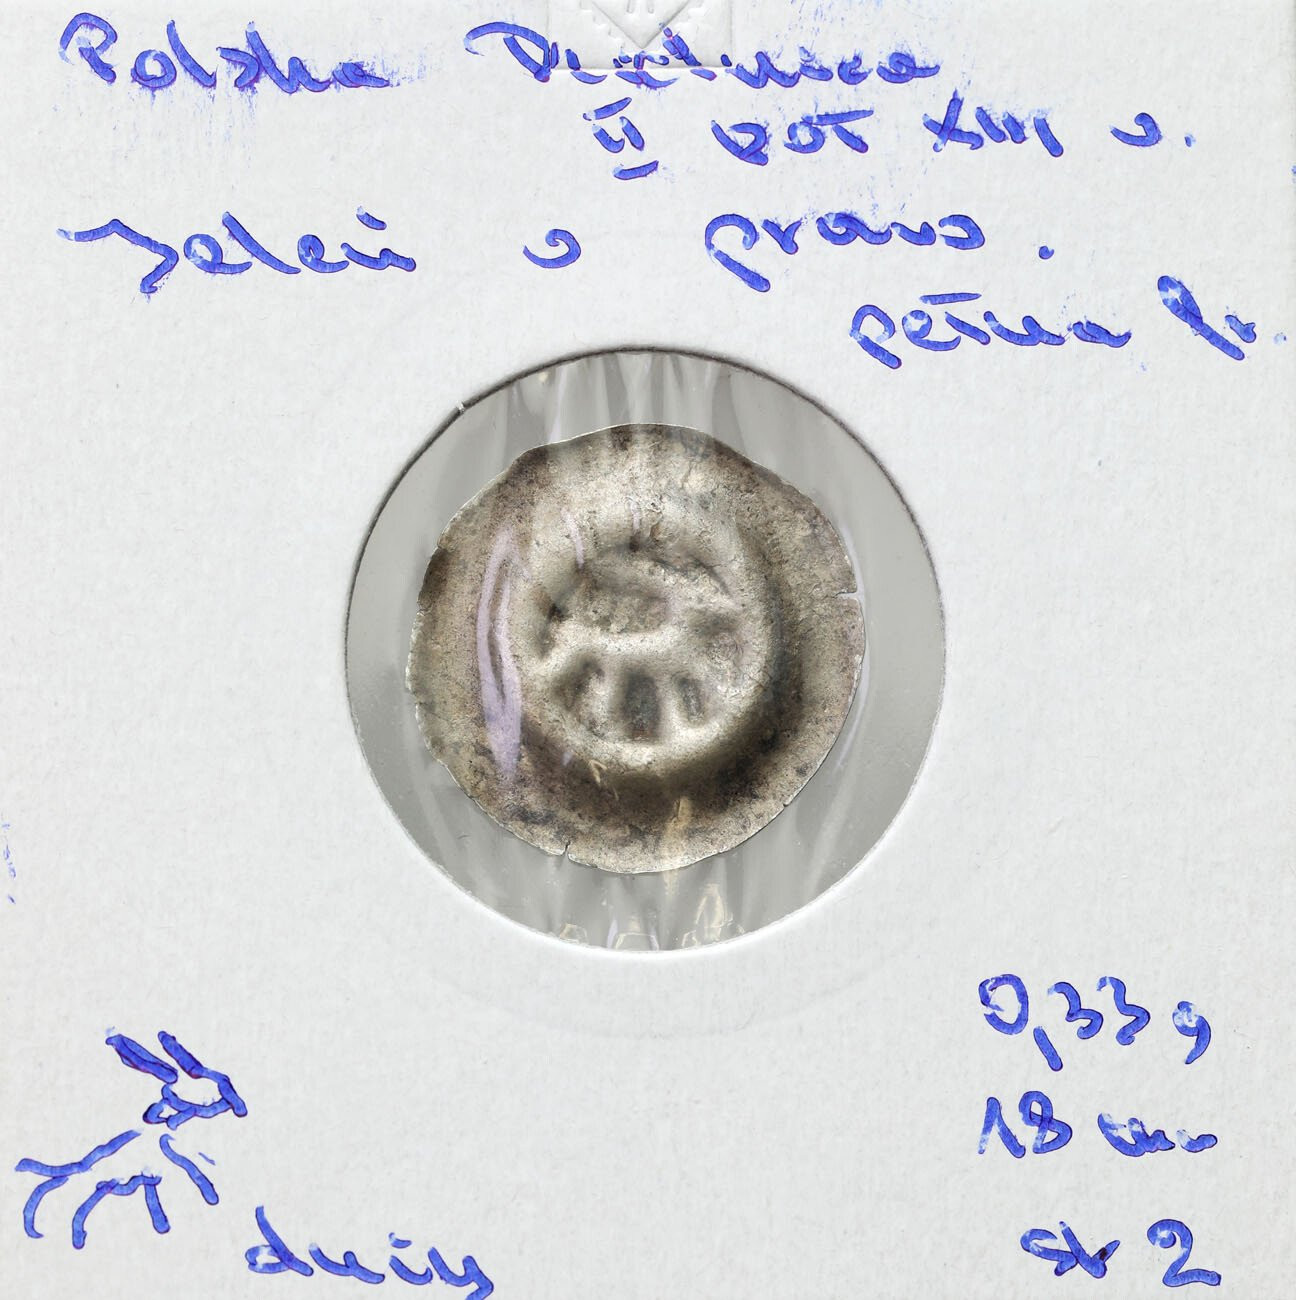 Polska Dzielnica
II poł XIII w.
Jeleń w prawo.
pełna
0,33 g
18 mm
st 2
duży